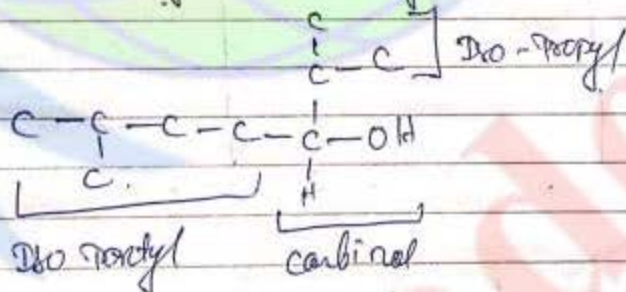 C
C - C ] Iso-Propyl
C - C - C - C - C - OH
C. H
Iso Pentyl carbinol